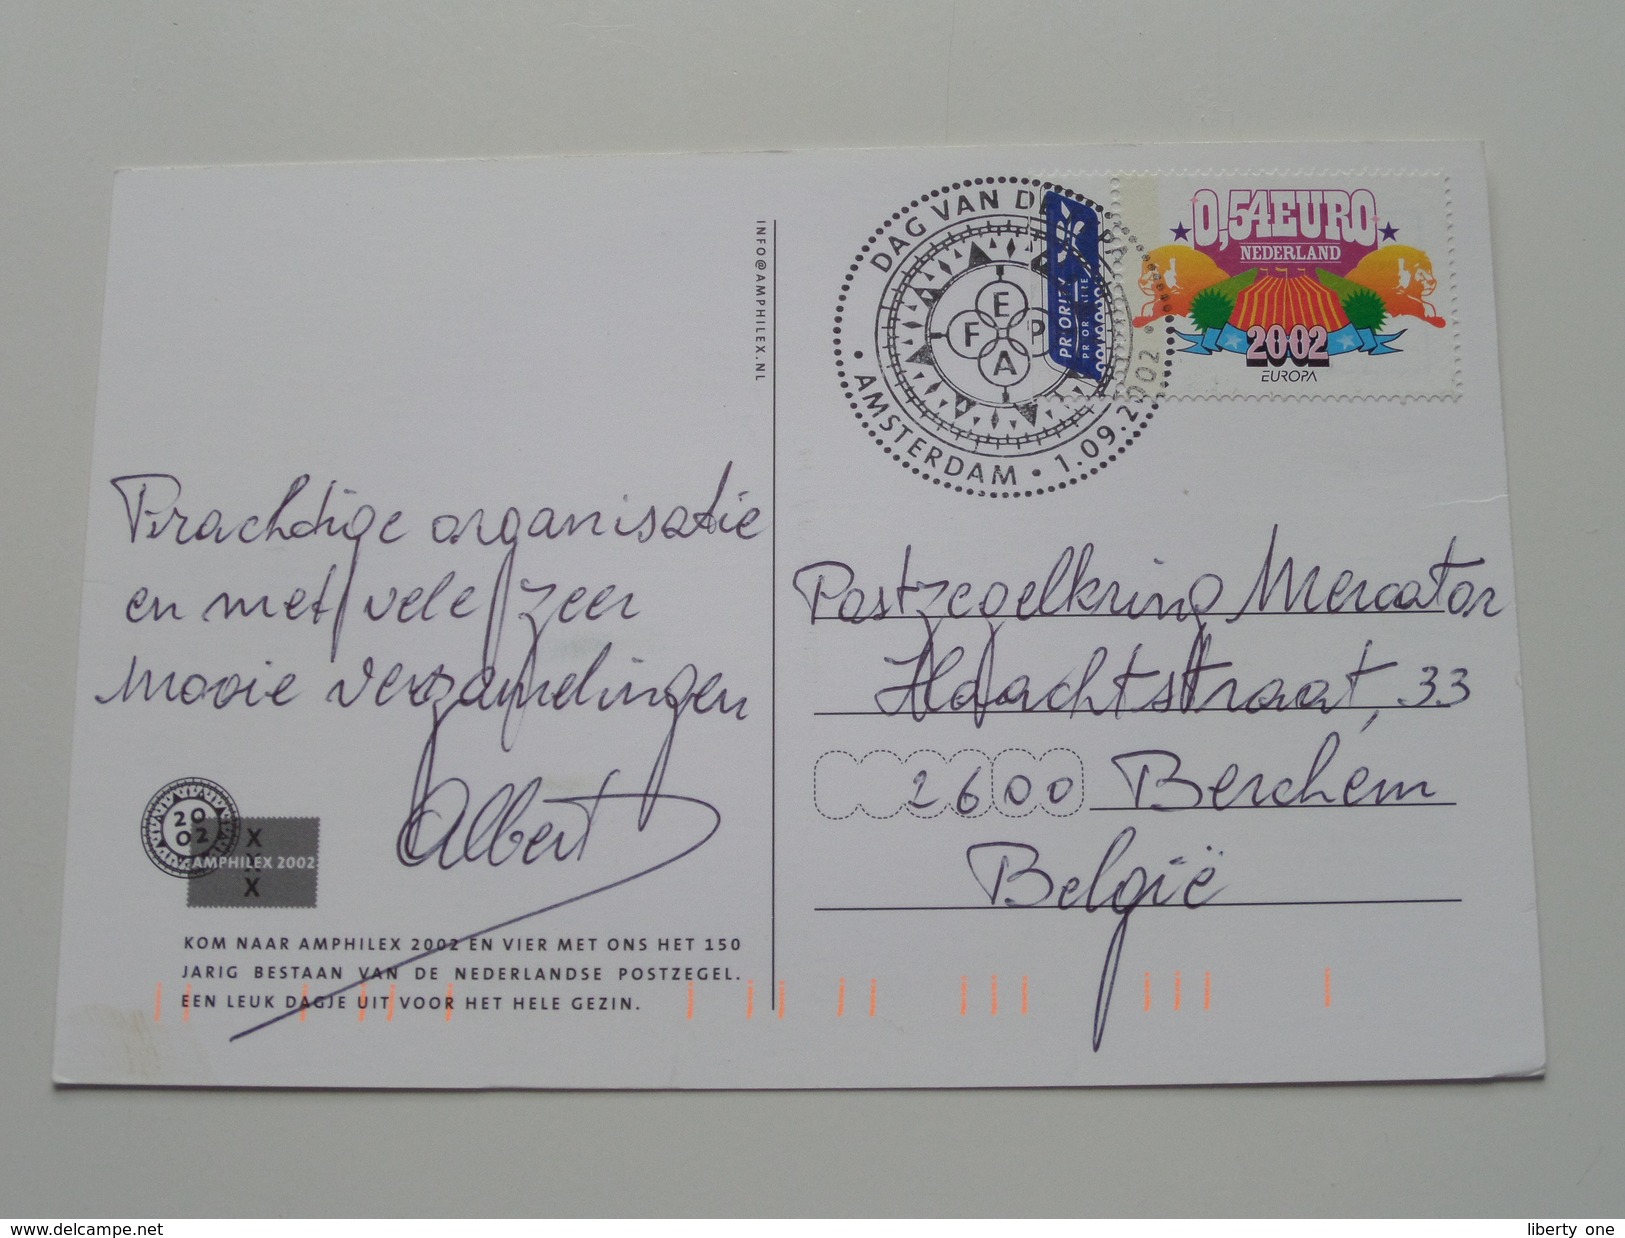 Prachtige organisatie
en met vele zeer
mooie verzamelingen
Albert
2002
XXX
AMPHILEX 2002
KOM NAAR AMPHILEX 2002 EN VIER MET ONS HET 150
JARIG BESTAAN VAN DE NEDERLANDSE POSTZEGEL.
EEN LEUK DAGJE UIT VOOR HET HELE GEZIN.
INFO@AMPHILEX.NL
DAG VAN DE
FEPA
AMSTERDAM • 1.09.2002
PRIORITY
PRIORITAIRE
0,54EURO
NEDERLAND
2002
EUROPA
Postzegelkring Mercator
Haachtstraat, 33
2600 Berchem
België
delcampe.net
liberty_one